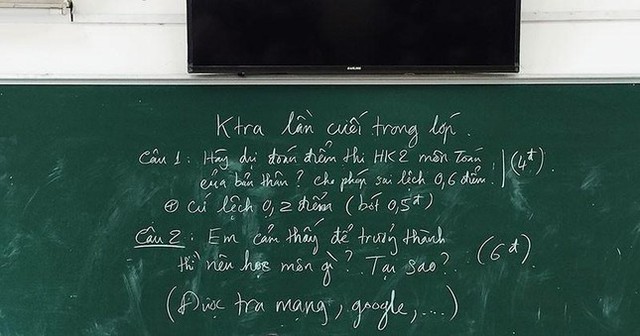 Ktra lần cuối trong lớp.
Câu 1: Hãy dự đoán điểm thi HK2 môn Toán
của bản thân? Cho phép sai lệch 0,6 điểm. (4đ)
+ Cứ lệch 0,2 điểm (bớt 0,5đ)
Câu 2: Em cảm thấy để trưởng thành
thì nên học môn gì? Tại sao? (6đ)
(Được tra mạng, google,...)